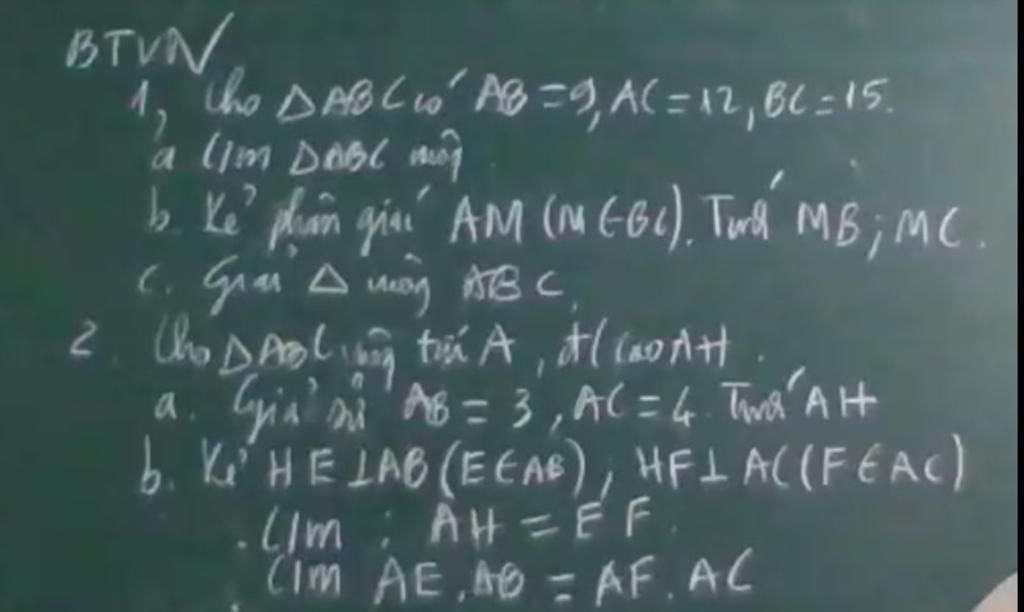 BTVN
1, Cho △ABC có AB = 9, AC = 12, BC = 15.
a C/m △ABC vuông
b. Kẻ phân giác AM (M ∈ BC). Tính MB; MC.
c. Giải △ vuông ABC.
2. Cho △ABC vuông tại A, đ/cao AH.
a. Giả sử AB = 3, AC = 4. Tính AH
b. Kẻ HE ⊥ AB (E ∈ AB), HF ⊥ AC (F ∈ AC)
. C/m : AH = EF.
C/m AE.AB = AF.AC